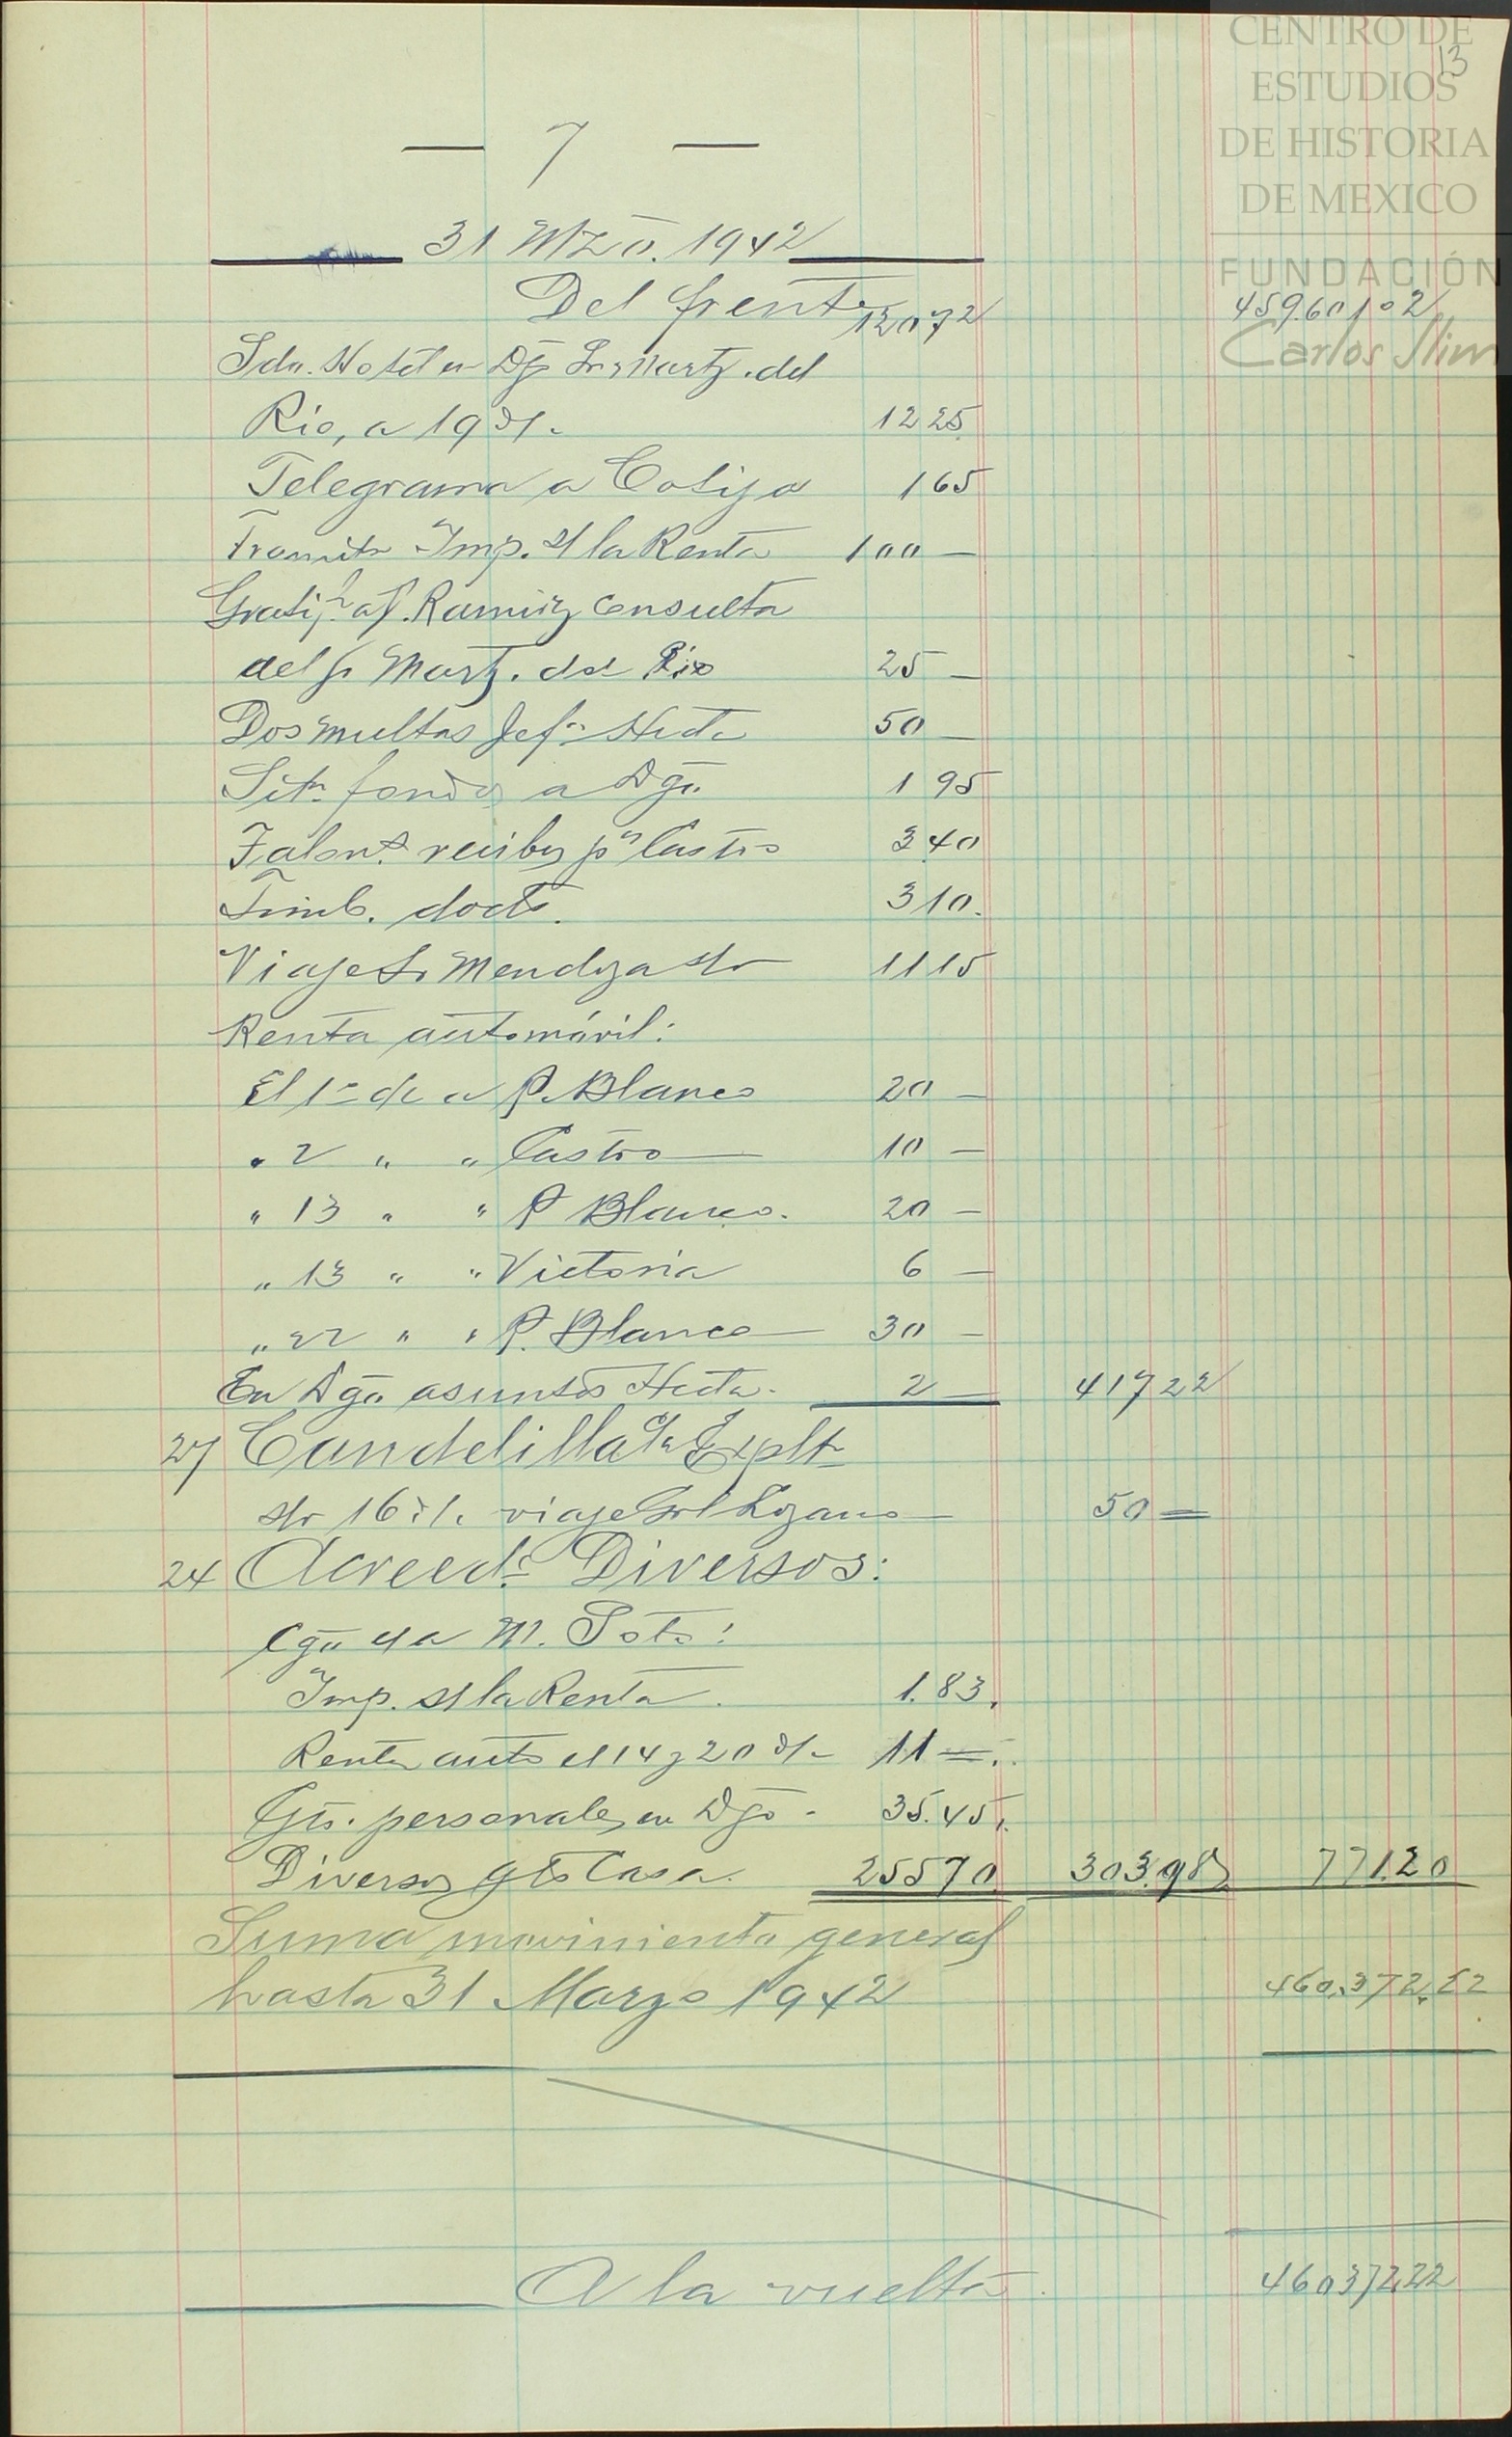 CENTRO DE
ESTUDIOS
DE HISTORIA
DE MEXICO
FUNDACIÓN
Carlos Slim
13
— 7 —
31 Mzo. 1942
Del frente 12072 459.60102
Hotel en Dgo Sr. Martz. del
Rio, a 19 1225
Telegrama a Cotija 165
Tramite Imp. s/ la Renta 100 —
Gratif. a J. Ramirez consulta
del Sr Martz. del Rio 25 —
Dos multas Jefa Hcda 50 —
Sitn. fondos a Dgo. 195
Talon. recibos pa Castro 340
Timb. docts. 310.
Viaje Sr Mendoza 1115
Renta automóvil:
El 1º de a P. Blanco 20 —
" 2 " " Castro 10 —
" 13 " " P Blanco. 20 —
" 13 " " Victoria 6 —
" 22 " " P. Blanco 30 —
En Dgo asuntos Hcda. 2 — 41722
27 Candelilla Explt
16 viaje Lozano 50 =
24 Acreeds. Diversos:
M. Soto:
Imp. s/ la Renta. 1.83.
Renta auto el 14 y 20 11 =
Gts. personales en Dgo. 35.45
Diversos gts Casa. 25570 303.98 771.20
Suma movimiento general
hasta 31 Marzo 1942 460.372.22
A la vuelta 46037222